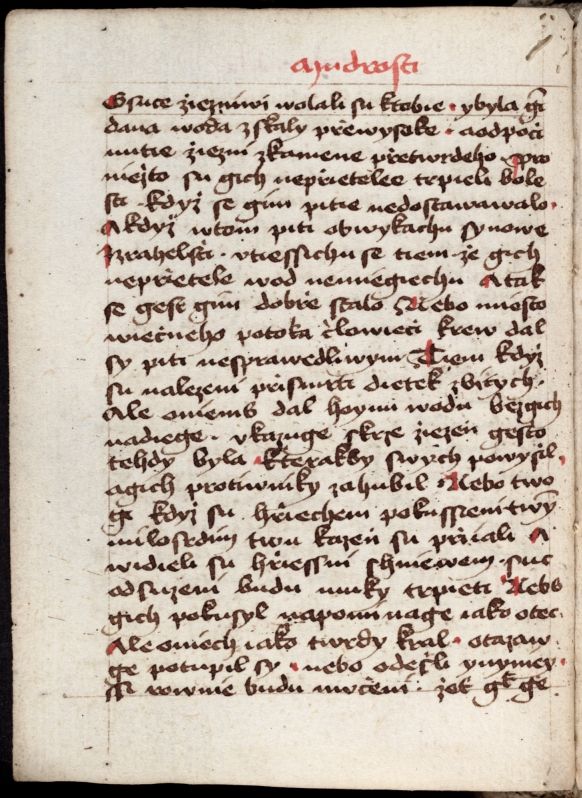 Mudrosti
Gsuce ziezniwi wolali su ktobie · ybyla gī
dana woda zskaly přewysoke · aodpoči
nutie ziezni zkamene přetwrdeho · Pro
niežto su gich nepřietelee trpieli bole
sti · když se gim pitie nedostawawalo ·
A když wtom piti obwykachu synowe
Izrahelsti · vtiessichu se tiem · že gich
nepřietele wod nemiegiechu A tak
se gest gim dobře stalo Nebo miesto
wiečneho potoka člowieči krew dal
sy piti nesprawedliwym Tiem když
su nalezeni přismrti dietek zbitych ·
Ale oniems dal hoynu wodu bezgich
nadiege · vkazuge skrze ziezen gesto
tehdy byla · kterakby swych powysil
agich protiwniky zahubil · Nebo two
gi když su hřiechem pokusseni twý
milosrdim twu kazen su prijali A
widieli su hřiessni shniewem · suc
odsuzeni budu muky trpieti Nebs
gich pokusyl napominage iako otec ·
Ale oniech iako twrdy kral · otazaw
ge potupil sy · nebo odešli ynymey ·
ssi rownie budu mučeni · žet gt ge